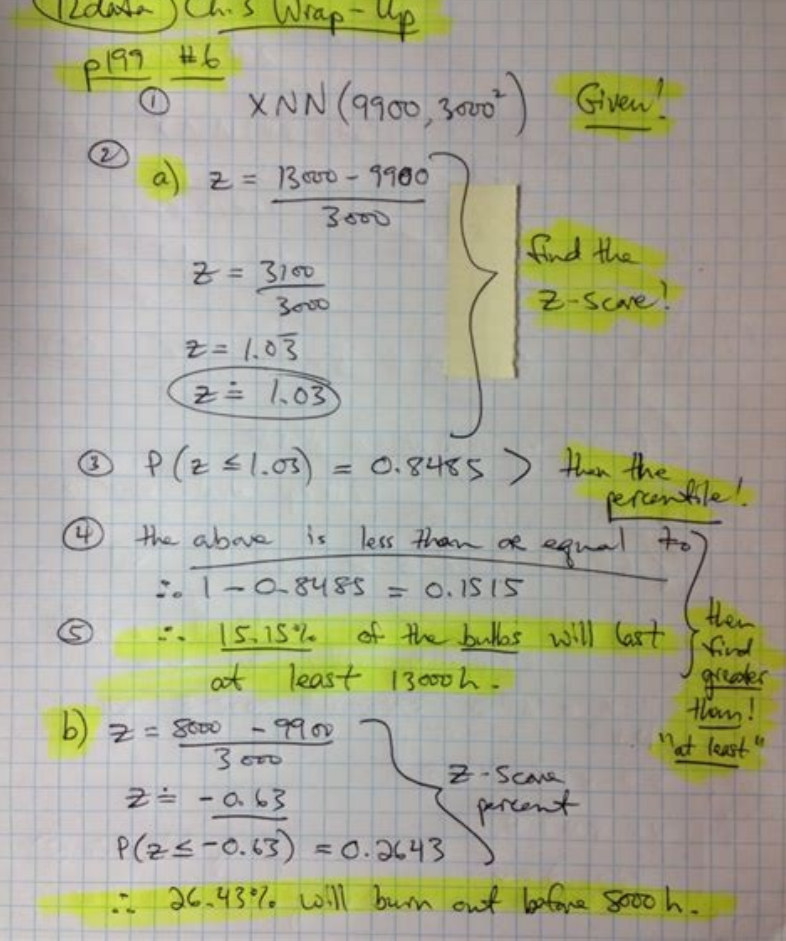 12data Ch.5 Wrap-Up
p199 #6
① X~N(9900, 3000²) Given!
②
a) z = 13000 - 9900
3000
z = 3100
3000
z = 1.03̅
z ≐ 1.03
find the
z-score!
③ P(z ≤ 1.03) = 0.8485 > then the
percentile!
④ the above is less than or equal to
∴ 1 - 0.8485 = 0.1515
⑤ ∴ 15.15% of the bulbs will last
at least 13000h.
then
find
greater
than!
"at least"
b) z = 8000 - 9900
3000
z ≐ -0.63
P(z ≤ -0.63) = 0.2643
z-score
percent
∴ 26.43% will burn out before 8000h.